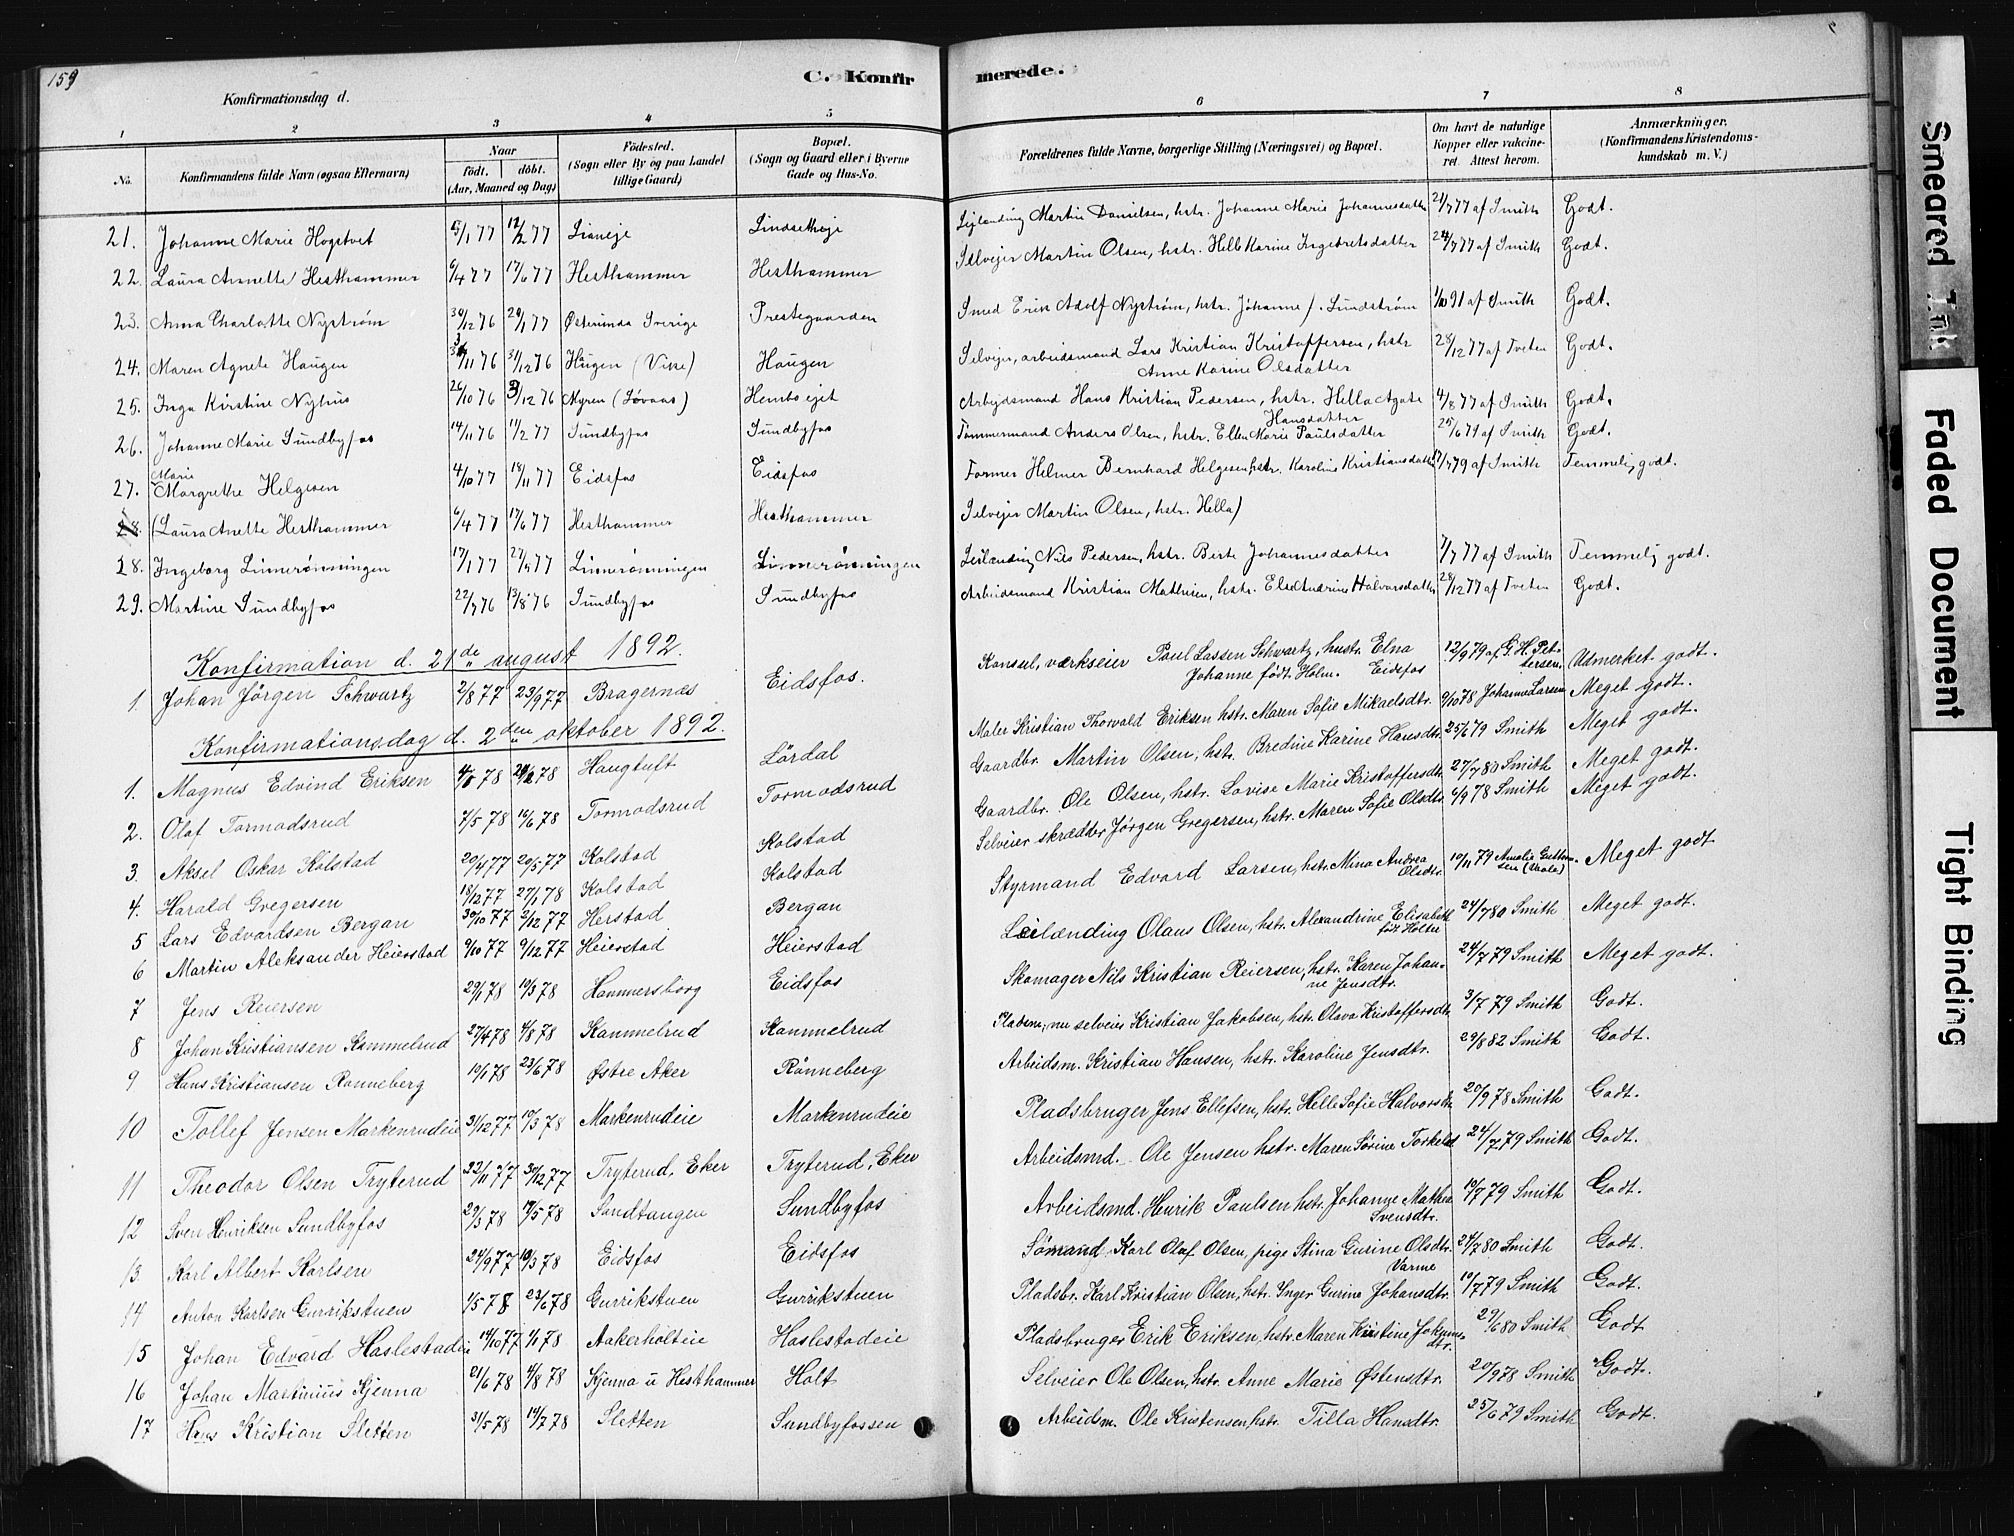 159
C. Konfirmerede.
Konfirmationsdag d.
1 2 3 4 5 6 7 8
No. Konfirmandens fulde Navn (ogsaa Efternavn) Naar født. døbt. (Aar, Maaned og Dag) Fødested. (Sogn eller By og paa Landet tillige Gaard) Bopæl. (Sogn og Gaard eller i Byerne Gade og Hus-No. Forældrenes fulde Navne, borgerlige Stilling (Næringsvei) og Bopæl. Om havt de naturlige Kopper eller vakcineret. Attest herom. Anmærkninger. (Konfirmandens Kristendomskundskab m. V.)
21. Johanne Marie Hogstvet 5/1 77 12/2 77 Lianeje Lindsetheje Lejlending Martin Danielsen, hstr. Johanne Marie Johannesdatter 21/7 77 af Smith Godt.
22. Laura Annette Hesthammer 6/4 77 17/6 77 Hesthammer Hesthammer Selvejer Martin Olsen, hstr. Helle Karine Ingebretsdatter 24/7 77 af Smith Godt.
23. Anna Charlotte Nystrøm 30/12 76 20/1 77 Østerunda Sverige Prestegaarden Smed Erik Adolf Nystrøm, hstr. Johanne f. Lundstrøm 1/10 91 af Smith Godt.
24. Maren Agnete Haugen 3/11 76 31/12 76 Haugen (Vive) Haugen Selvejer, arbeidsmand Lars Kristian Kristoffersen, hstr Anne Karine Olsdatter 28/12 77 af Tveten Godt.
25. Inga Kirstine Nyhus 26/10 76 3/12 76 Myren (Løvaas) Hembsejet Arbejdsmand Hans Kristian Pedersen, hstr. Hella Agate Hansdatter 4/8 77 af Smith Godt.
26. Johanne Marie Sundbyfos 14/11 76 11/2 77 Sundbyfos Sundbyfos Tømmermand Anders Olsen, hstr. Ellen Marie Paulsdatter 25/6 79 af Smith Godt.
27. Marie Margrethe Helgesen 4/10 77 18/11 77 Eidsfos Eidsfos Former Helmer Bernhard Helgesen hstr. Karoline Kristiansdatter 17/7 79 af Smith Temmelig godt.
28. (Laura Anette Hesthammer 6/4 77 17/6 77 Hesthammer Hesthammer Selvejer Martin Olsen, hstr. Hella)
28. Ingeborg Linnerønningen 17/1 77 Linnerønningen Linnerønningen Leilending Nils Pedersen, hstr. Berte Johannesdatter 7/7 77 af Smith Temmelig godt.
29. Martine Sundbyfos 22/7 76 13/8 76 Sundbyfos Sundbyfos Arbeidsmand Kristian Mathisen, hstr. Else Andrine Halvorsdatter 28/12 77 af Tveten Godt.
Konfirmation d. 21de august 1892.
1. Johan Jørgen Schwartz 2/8 77 23/9 77 Bragernæs Eidsfos. Konsul, værkseier Paul Lassen Schwartz, hustr. Elna Johanne født Holm. Eidsfos 12/9 79 af G. H. Petersen. Udmerket godt.
Konfirmationsdag d. 2den oktober 1892.
1. Magnus Edvind Eriksen 78 Haugtuft Lørdal Maler Kristian Thorvald Eriksen hstr. Maren Sofie Mikaelsdtr. 9/10 78 Johanne Larsen Meget godt.
2. Olaf Tormodsrud 7/5 78 16/6 78 Tormodsrud Tormodsrud Gaardbr. Martin Olsen, hstr. Bredine Karine Hansdtr. 25/6 79 Smith Meget godt.
3. Aksel Oskar Kolstad 20/4 77 20/5 77 Kolstad Kolstad Gaardbr. Ole Olsen, hstr. Lovise Marie Kristoffersdtr. 27/7 80 Smith Meget godt.
4. Harald Gregersen 18/12 77 27/1 78 Kolstad Kolstad Selveier skrædder Jørgen Gregersen, hstr. Maren Sofie Olsdtr. 6/9 78 Smith Meget godt.
5 Lars Edvardsen Bergan 30/10 77 2/12 77 Herstad Bergan Styrmand Edvard Larsen, hstr. Mina Andrea Olsdtr. 10/11 79 Amalie Guttormsen (Vaale) Meget godt
6 Martin Aleksander Heierstad 9/10 77 9/12 77 Heierstad Heierstad Leilænding Olaus Olsen, hstr. Alexandrine Elisabeth født Holter 24/7 80 Smith Meget godt.
7 Jens Reiersen 29/1 78 10/3 78 Hammersborg Eidsfos Skomager Nils Kristian Reiersen, hstr. Karen Johanne Jensdtr. 24/7 79 Smith Meget godt.
8 Johan Kristiansen Kammelrud 27/4 78 4/8 78 Kammelrud Kammelrud Pladsm, nu selveier Kristian Jakobsen, hstr. Olava Kristoffersdtr. 3/7 79 Smith Godt.
9 Hans Kristiansen Rønneberg 10/1 78 23/6 78 Østre Aker Rønneberg Arbeidsm. Kristian Hansen, hstr. Karoline Jensdtr. 29/8 82 Smith Godt.
10 Tollef Jensen Markenrudeie 31/12 77 10/3 78 Markenrudeie Markenrudeie Pladsbruger Jens Ellefsen, hstr. Helle Sofie Halvorsdtr. 20/9 78 Smith Godt.
11 Theodor Olsen Tryterud 22/11 77 30/12 77 Tryterud, Eker Tryterud, Eker Arbeidsmd. Ole Jensen hstr. Maren Sørine Torkelsd 24/7 79 Smith Godt.
12 Sven Henriksen Sundbyfos 29/3 78 19/5 78 Sandtangen Sundbyfos Arbeidsmd. Henrik Paulsen hstr. Johanne Mathea Svensdtr. 10/7 79 Smith Godt.
13. Karl Albert Karlsen 24/9 77 10/3 78 Eidsfos Eidsfos Sømand Karl Olaf Olsen, pige Stina Gurine Olsdtr. Varme 24/7 80 Smith Godt.
14 Anton Karlsen Gurrikstuen 1/5 78 23/6 78 Gurrikstuen Gurrikstuen Pladsbr. Karl Kristian Olsen, hstr. Inger Gurine Johansdtr. 10/7 79 Smith Godt.
15 Johan Edvard Haslestadeie 14/10 77 1/1 78 Aakerholteie Haslestadeie Pladsbruger Erik Eriksen, hstr. Maren Kristine Johannesdtr. 29/6 80 Smith Godt
16 Johan Martinius Kjenna 21/6 78 4/8 78 Kjenna u Hesthammer Holt Selveier Ole Olsen, hstr. Anne Marie Østensdtr. 20/9 78 Smith Godt.
17 Hans Kristian Sletten 31/5 78 14/7 78 Sletten Sundbyfossen Arbeidsm. Ole Kristensen hstr. Tilla Hansdtr. 25/6 79 Smith Godt.
Smeared Ink
Faded Document
Tight Binding